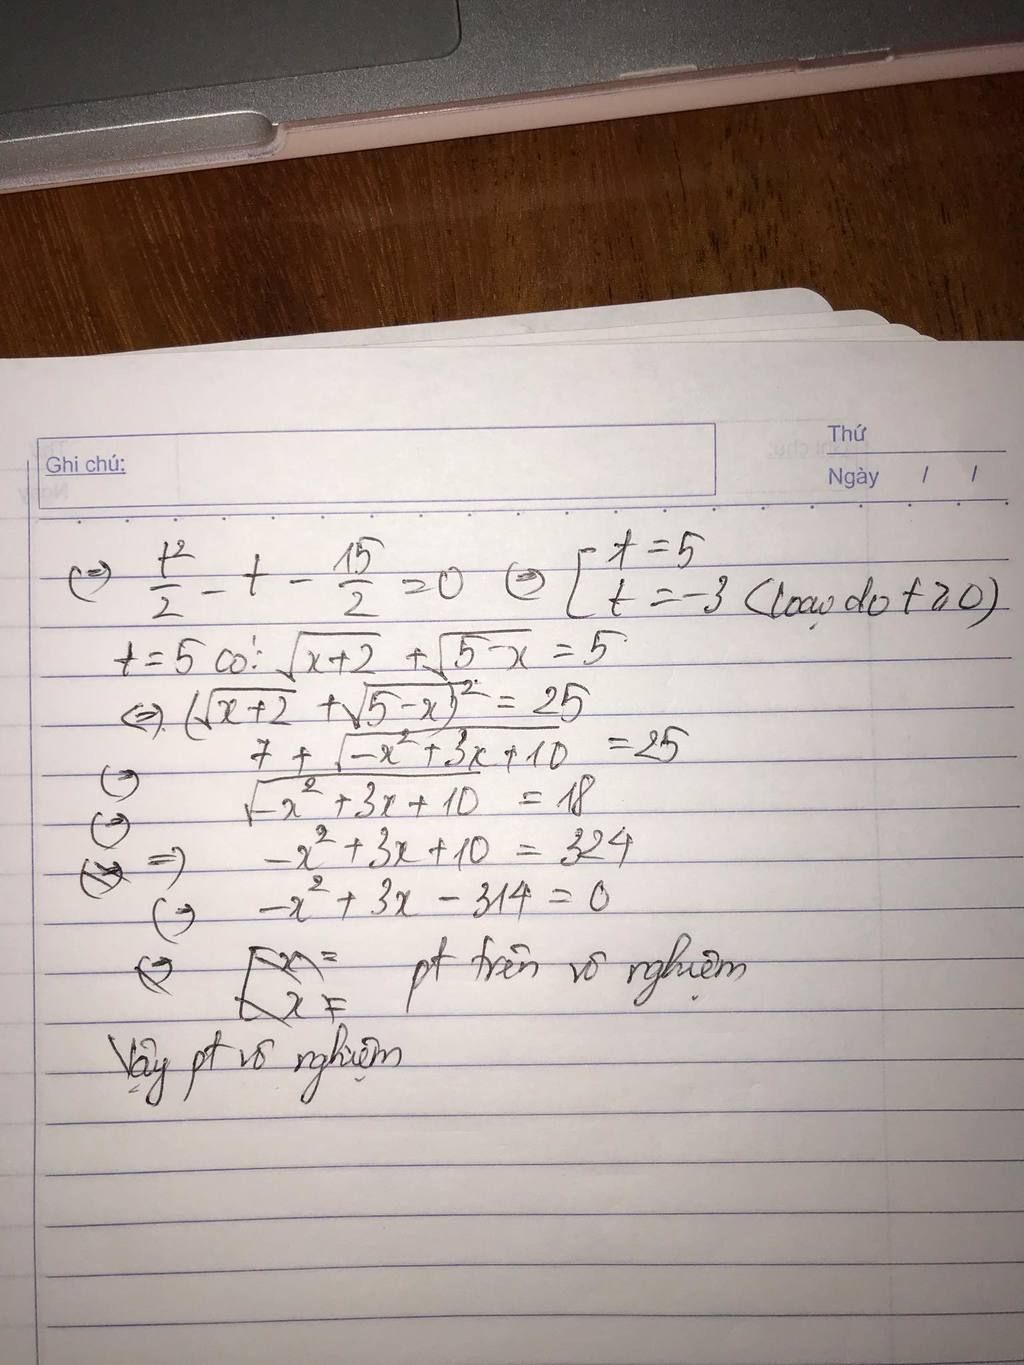 Ghi chú:
Thứ
Ngày / /
(=) t²/2 - t - 15/2 = 0 (=) [ t = 5
t = -3 (loại do t ≥ 0)
t = 5 có: √(x+2) + √(5-x) = 5
(=) (√(x+2) + √(5-x))² = 25
7 + √(-x²+3x+10) = 25
(=) √(-x²+3x+10) = 18
(=)
=) -x²+3x+10 = 324
(=) -x² + 3x - 314 = 0
pt trên vô nghiệm
Vậy pt vô nghiệm